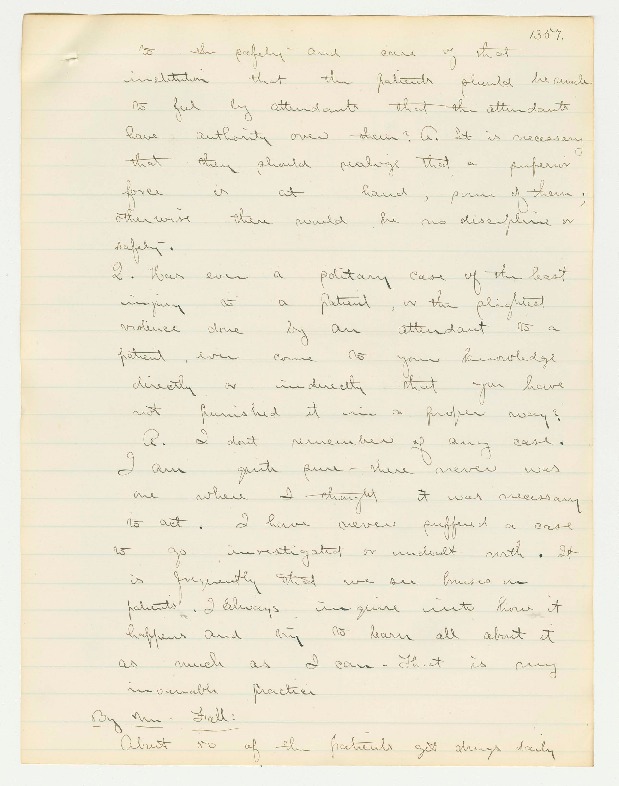 1357.
to the safety and care of that
institution that the patients should be made
to feel by attendants that the attendants
have authority over them? A. It is necessary
that they should realize that a superior
force is at hand, some of them;
otherwise there would be no discipline or
safety.
Q. Has ever a solitary case of the least
injury to a patient, or the slightest
violence done by an attendant to a
patient, ever come to your knowledge
directly or indirectly that you have
not punished it in a proper way?
A. I don't remember of any case.
I am quite sure - there never was
one where I thought it was necessary
to act. I have never suffered a case
to go investigated or undealt with. It
is frequently that we see bruises on
patients. I always inquire into how it
happens and try to learn all about it
as much as I can - That is my
invariable practice
By Mr. Fall:
About 50 of the patients get drugs daily